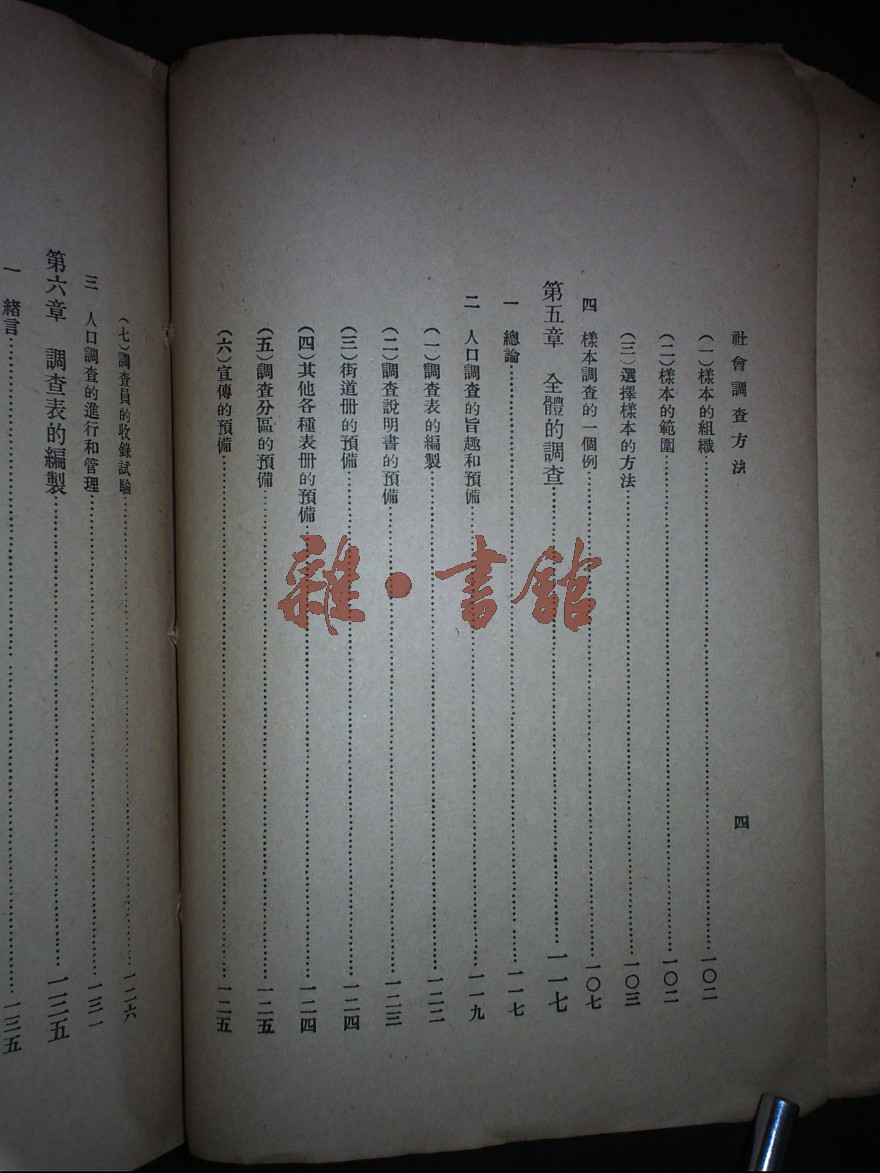 社會調查方法
四
(一)樣本的組織……一〇二
(二)樣本的範圍……一〇二
(三)選擇樣本的方法……一〇三
四 樣本調查的一個例……一〇七
第五章 全體的調查……一一七
一 總論……一一七
二 人口調查的旨趣和預備……一一九
(一)調查表的編製……一二二
(二)調查說明書的預備……一二三
(三)街道册的預備……一二四
(四)其他各種表册的預備……一二四
(五)調查分區的預備……一二五
(六)宣傳的預備……一二五
(七)調查員的收錄試驗……一二六
三 人口調查的進行和管理……一三一
第六章 調查表的編製……一三五
一 緒言……一三五
雜·書館